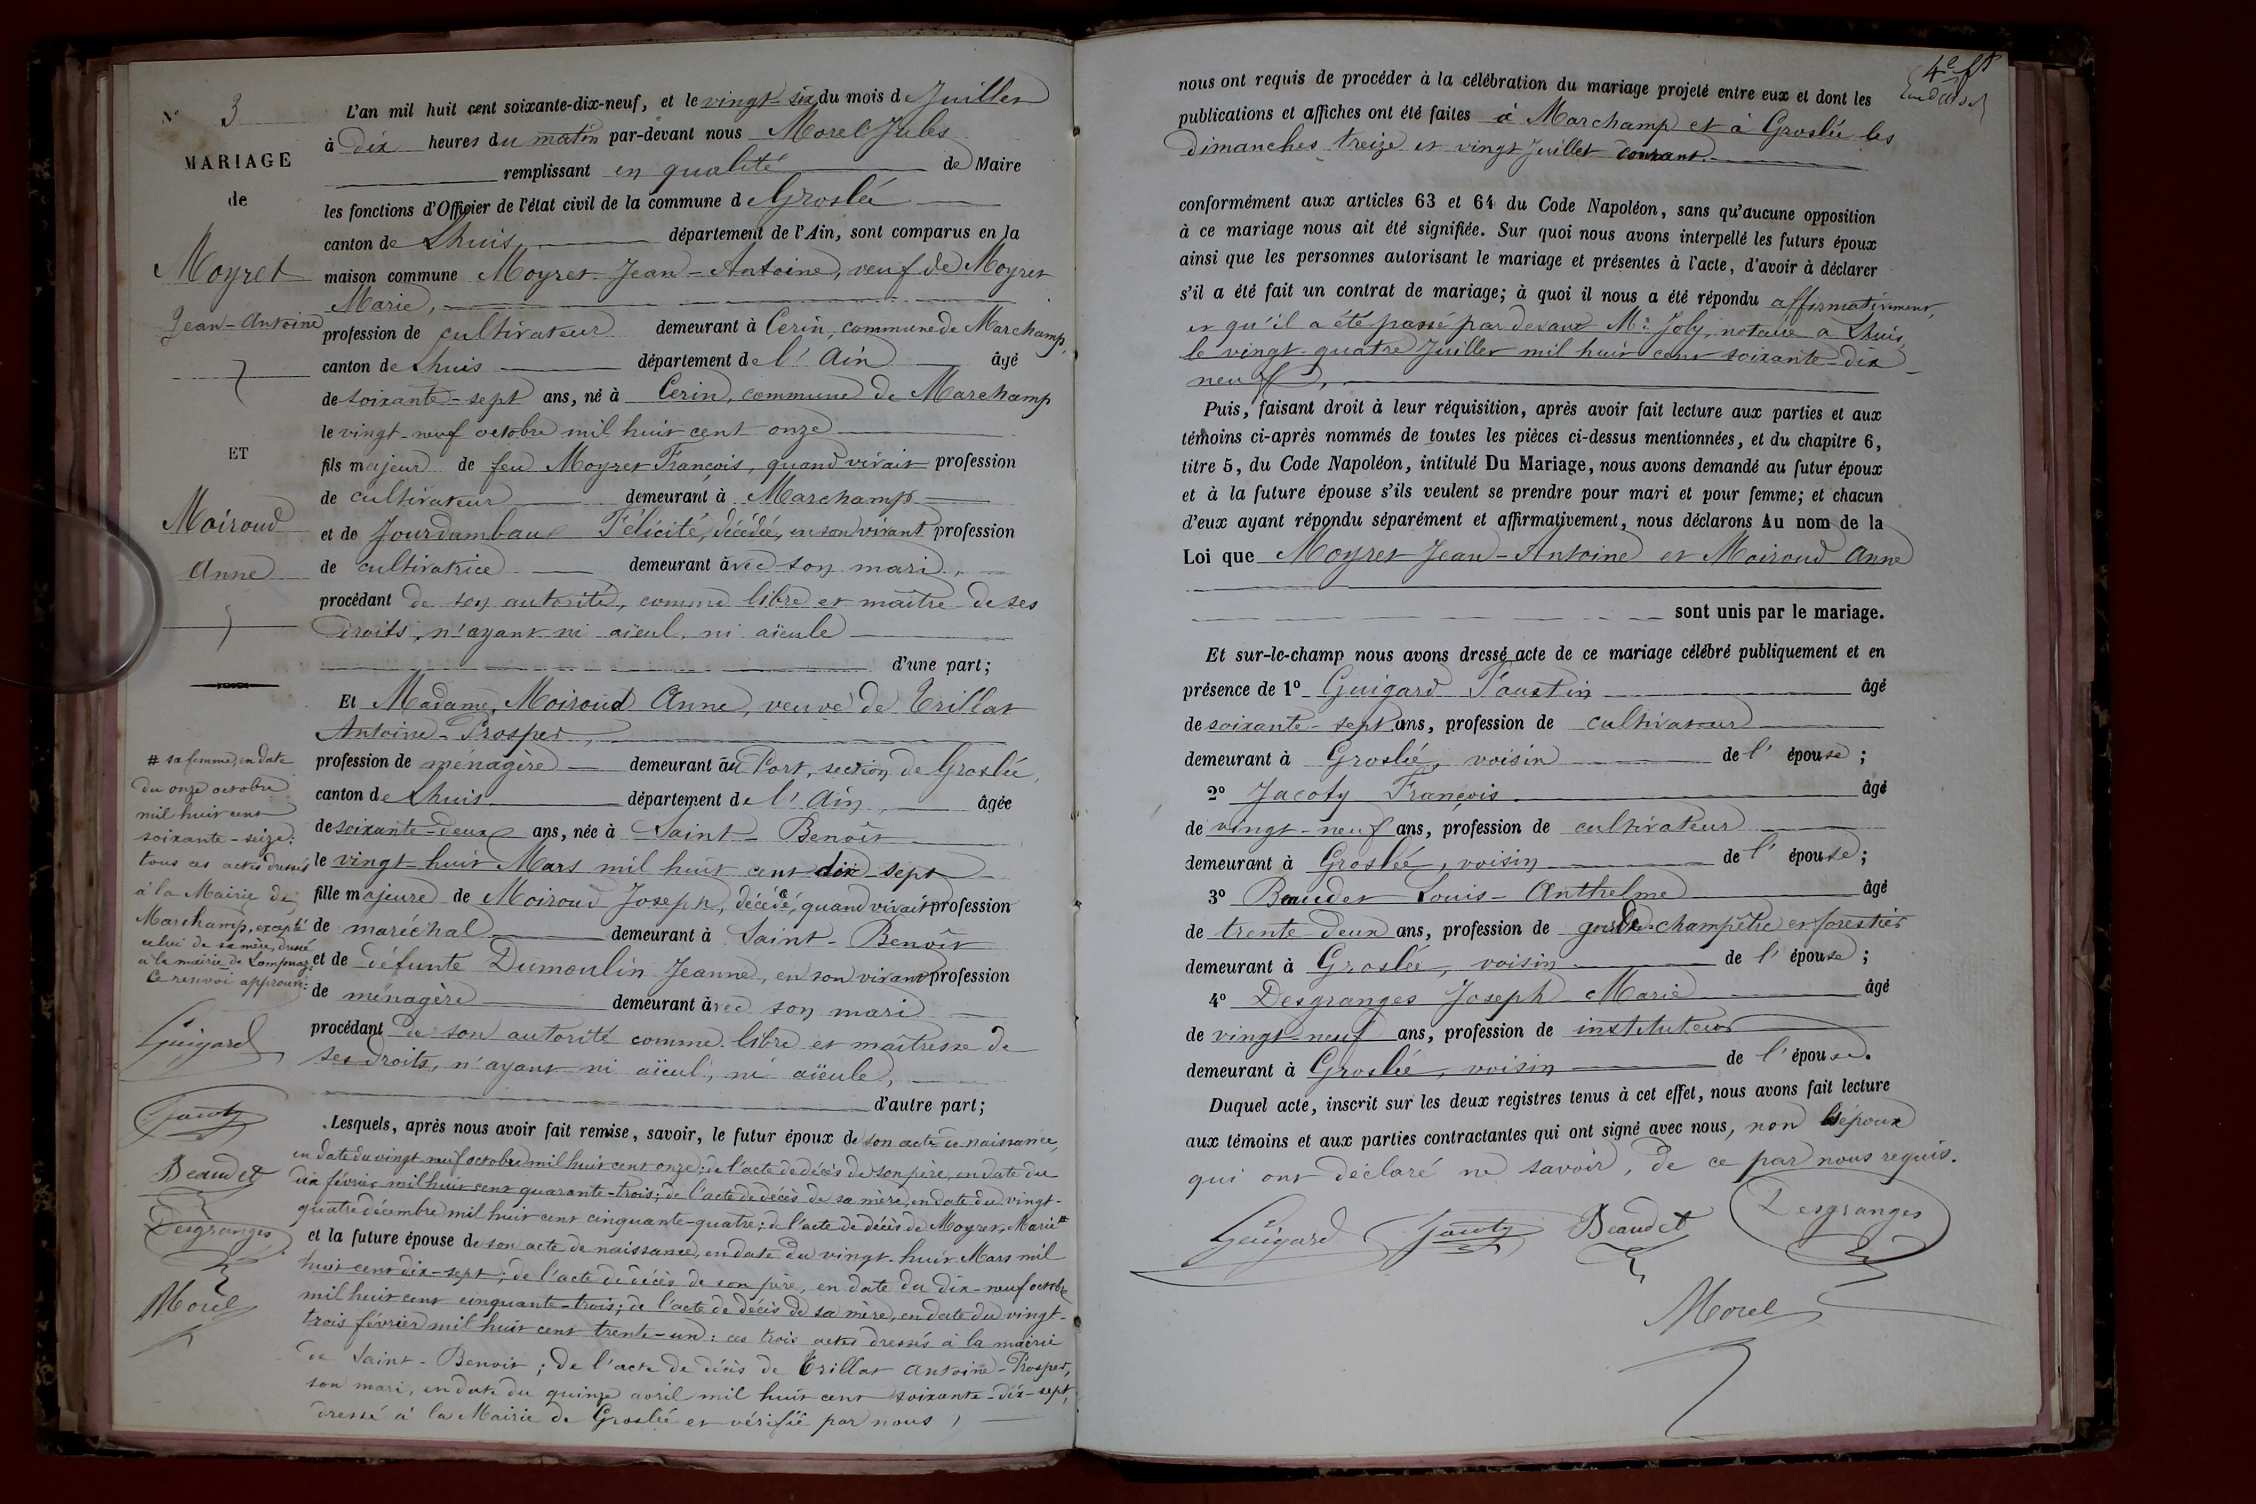 N° 3
MARIAGE
de
Moyret
Jean-Antoine
ET
Moiroud
Anne
# sa femme, en date
du onze octobre
mil huit cent
soixante-seize:
tous ces actes dressés
à la Mairie de
Marchamp, excepté
celui de sa mère, dressé
à la mairie de Lompnaz:
Ce renvoi approuvé:
Guigard
Jacoty
Beaudet
Desgranges
Morel
L'an mil huit cent soixante-dix-neuf, et le vingt-six du mois de Juillet
à dix heures du matin par-devant nous Morel Jules
remplissant en qualité de Maire
les fonctions d'Officier de l'état civil de la commune de Groslée
canton de Lhuis département de l'Ain, sont comparus en la
maison commune Moyret Jean-Antoine, veuf de Moyret
Marie,
profession de cultivateur demeurant à Cerin, commune de Marchamp,
canton de Lhuis département de l'Ain âgé
de soixante-sept ans, né à Cerin, commune de Marchamp
le vingt-neuf octobre mil huit cent onze
fils majeur de feu Moyret François, quand vivait profession
de cultivateur demeurant à Marchamp
et de Jourdambaux Félicité, décédée, en son vivant profession
de cultivatrice demeurant avec son mari,
procédant de son autorité, comme libre et maître de ses
droits, n'ayant ni aïeul, ni aïeule
d'une part;
Et Madame, Moiroud Anne, veuve de Trillat
Antoine-Prosper,
profession de ménagère demeurant au Port, section de Groslée,
canton de Lhuis département de l'Ain, âgée
de soixante-deux ans, née à Saint-Benoît
le vingt-huit Mars mil huit cent dix sept
fille majeure de Moiroud Joseph, décédé, quand vivait profession
de maréchal demeurant à Saint-Benoît
et de défunte Dumoulin Jeanne, en son vivant profession
de ménagère demeurant avec son mari
procédant de son autorité comme libre et maîtresse de
ses droits, n'ayant ni aïeul, ni aïeule,
d'autre part;
Lesquels, après nous avoir fait remise, savoir, le futur époux de son acte de naissance,
en date du vingt neuf octobre mil huit cent onze; de l'acte de décès de son père, en date du
dix février mil huit cent quarante-trois; de l'acte de décès de sa mère, en date du vingt-
quatre décembre mil huit cent cinquante-quatre; de l'acte de décès de Moyret, Marie #
et la future épouse de son acte de naissance, en date du vingt-huit Mars mil
huit cent dix-sept; de l'acte de décès de son père, en date du dix-neuf octobre
mil huit cent cinquante-trois; de l'acte de décès de sa mère, en date du vingt-
trois février mil huit cent trente-un: ces trois actes dressés à la mairie
de Saint-Benoît; de l'acte de décès de Trillat Antoine-Prosper,
son mari, en date du quinze avril mil huit cent soixante-dix-sept,
dressé à la Mairie de Groslée et vérifié par nous,
4e ft
nous ont requis de procéder à la célébration du mariage projeté entre eux et dont les
publications et affiches ont été faites à Marchamp et à Groslée les
dimanches treize et vingt Juillet courant.
conformément aux articles 63 et 64 du Code Napoléon, sans qu'aucune opposition
à ce mariage nous ait été signifiée. Sur quoi nous avons interpellé les futurs époux
ainsi que les personnes autorisant le mariage et présentes à l'acte, d'avoir à déclarer
s'il a été fait un contrat de mariage; à quoi il nous a été répondu affirmativement,
et qu'il a été passé par devant Me Joly, notaire à Lhuis,
le vingt-quatre Juillet mil huit cent soixante-dix-
neuf,
Puis, faisant droit à leur réquisition, après avoir fait lecture aux parties et aux
témoins ci-après nommés de toutes les pièces ci-dessus mentionnées, et du chapitre 6,
titre 5, du Code Napoléon, intitulé Du Mariage, nous avons demandé au futur époux
et à la future épouse s'ils veulent se prendre pour mari et pour femme; et chacun
d'eux ayant répondu séparément et affirmativement, nous déclarons Au nom de la
Loi que Moyret Jean-Antoine et Moiroud Anne
sont unis par le mariage.
Et sur-le-champ nous avons dressé acte de ce mariage célébré publiquement et en
présence de 1° Guigard Faustin âgé
de soixante-sept ans, profession de cultivateur
demeurant à Groslée, voisin de l'épouse;
2° Jacoty François âgé
de vingt-neuf ans, profession de cultivateur
demeurant à Groslée, voisin de l'épouse;
3° Beaudet Louis-Anthelme âgé
de trente deux ans, profession de garde-champêtre et forestier
demeurant à Groslée, voisin de l'épouse;
4° Desgranges Joseph Marie âgé
de vingt-neuf ans, profession de instituteur
demeurant à Groslée, voisin de l'épouse.
Duquel acte, inscrit sur les deux registres tenus à cet effet, nous avons fait lecture
aux témoins et aux parties contractantes qui ont signé avec nous, non les époux
qui ont déclaré ne savoir, de ce par nous requis.
Guigard Jacoty Beaudet Desgranges
Morel